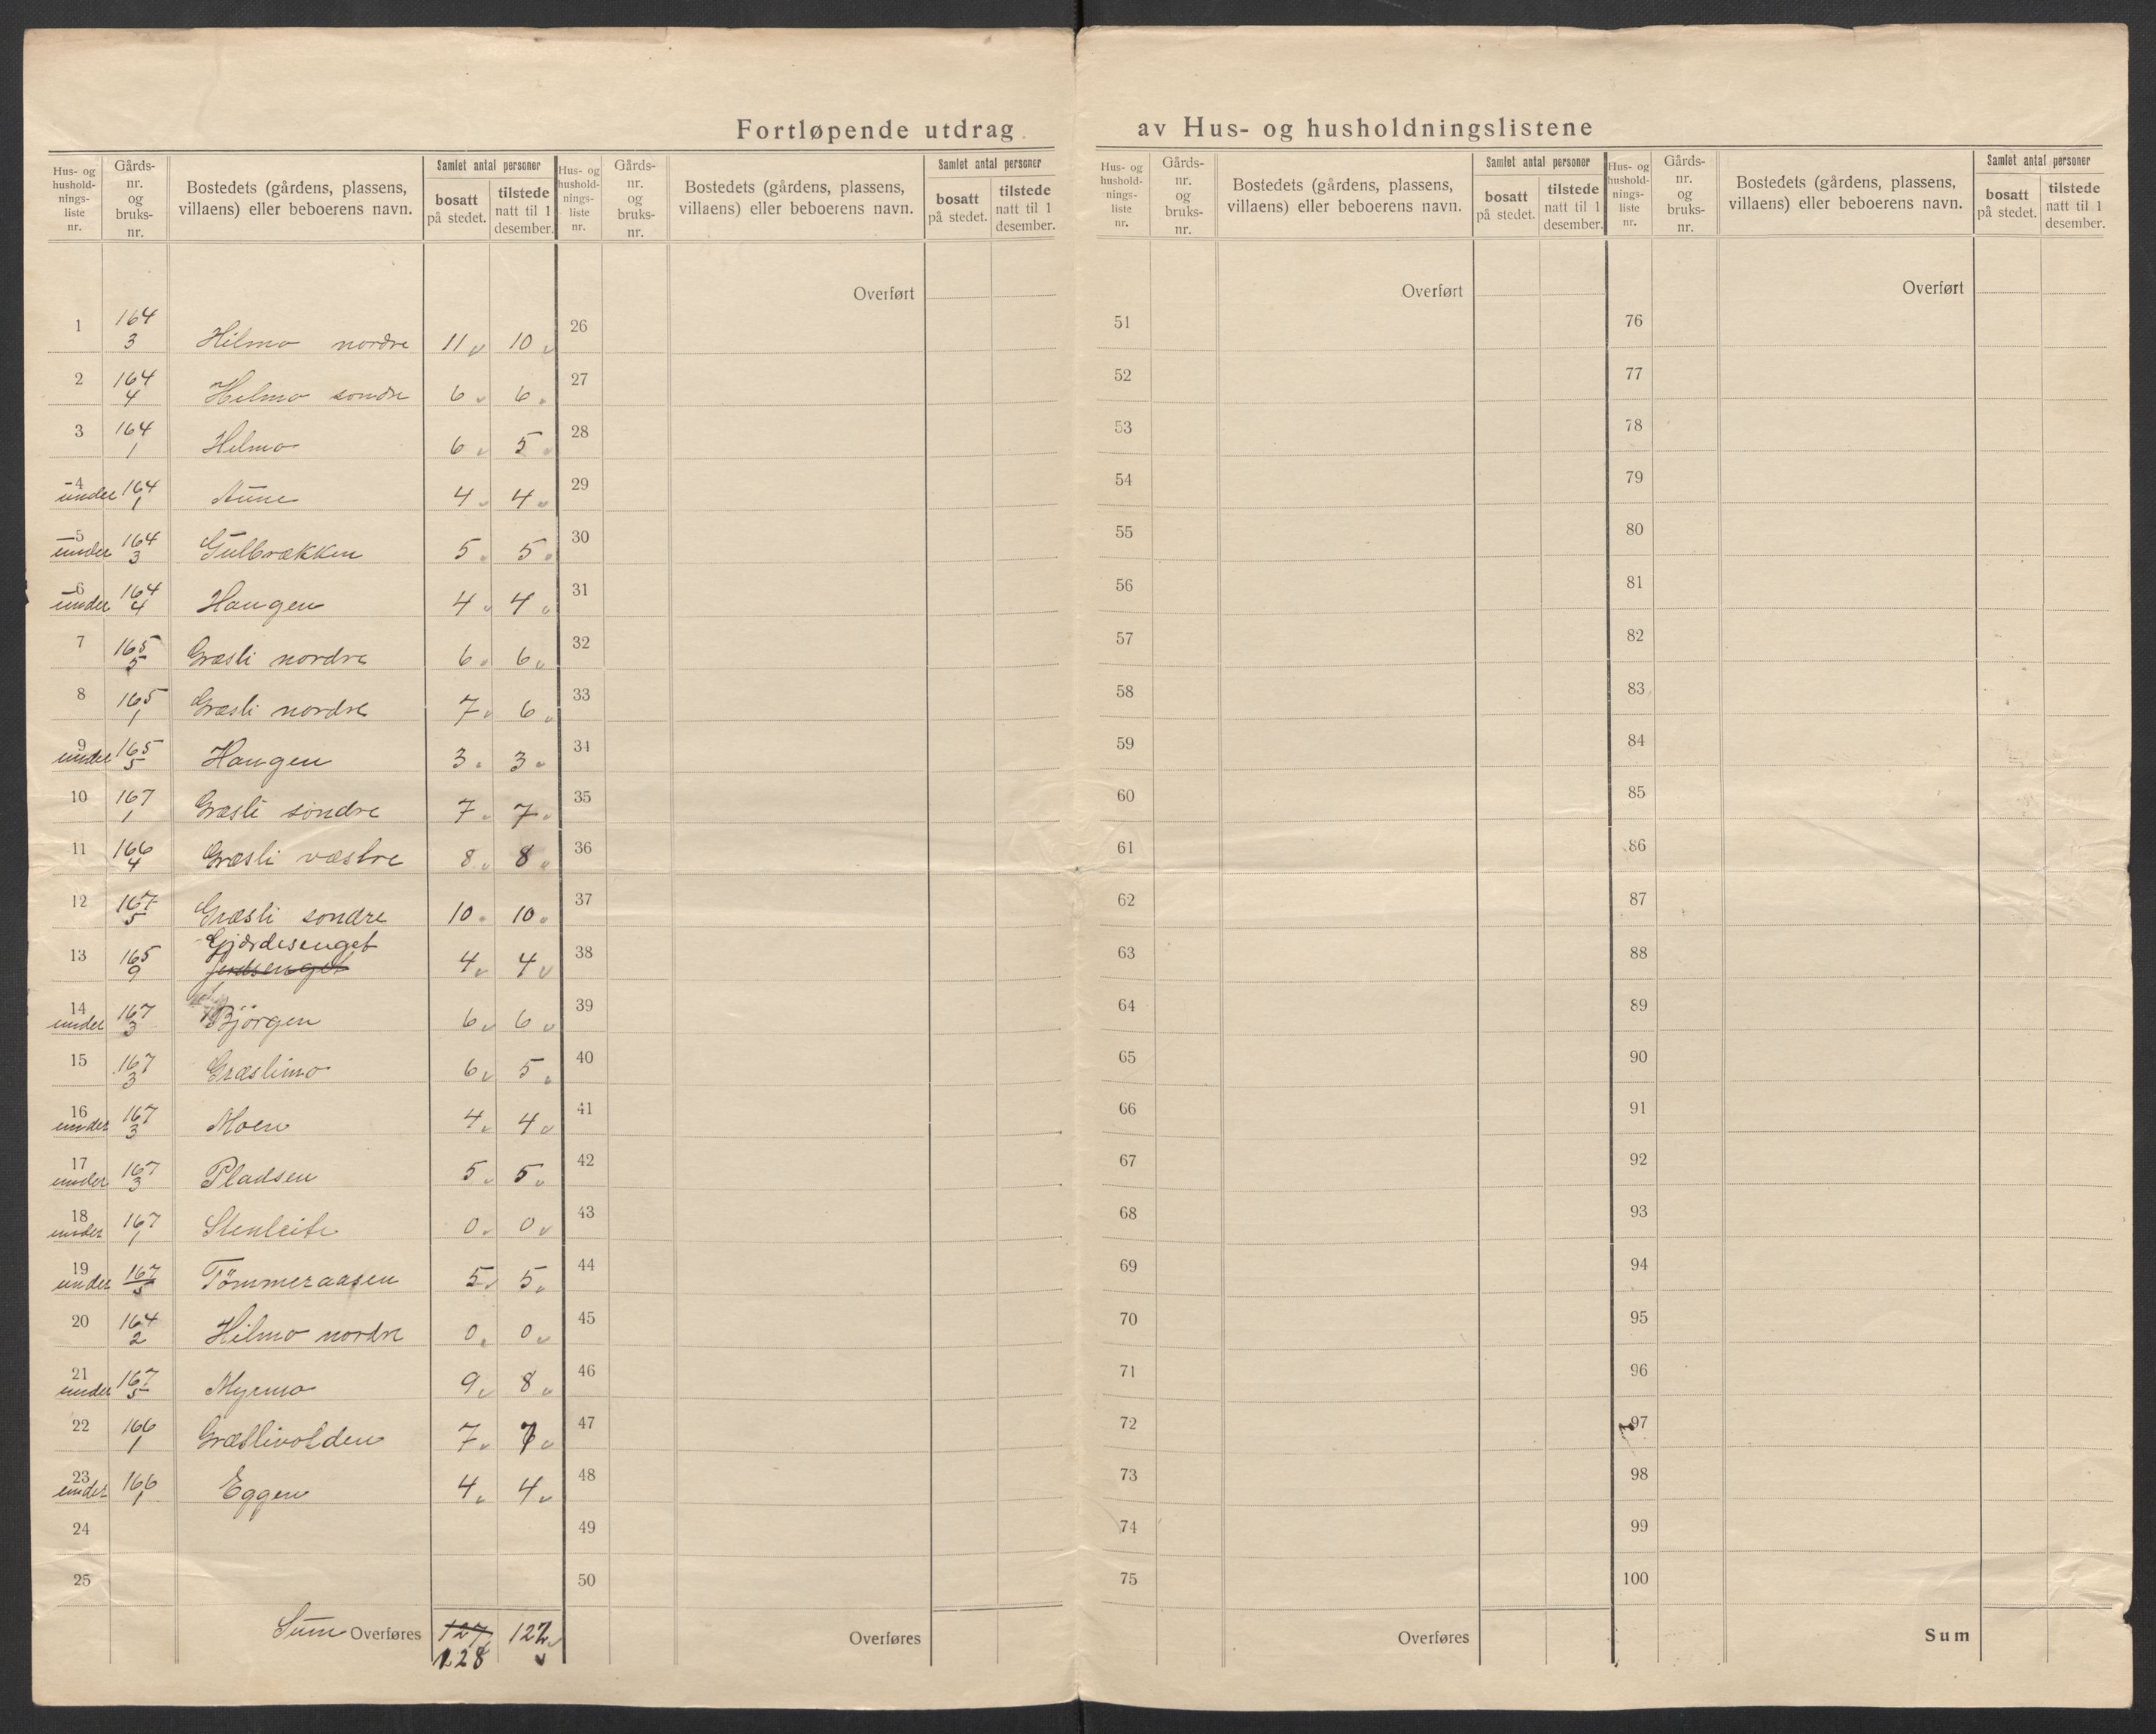 Fortløpende utdrag av Hus- og husholdningslistene
Hus- og hushold- nings- liste nr. | Gårds- nr. og bruks- nr. | Bostedets (gårdens, plassens, villaens) eller beboerens navn. | Samlet antal personer | bosatt på stedet. | tilstede natt til 1 desember.
1 164/3 Hilmo nordre 11 10
2 164/4 Hilmo sondre 6 6
3 164/1 Hilmo 6 5
4 under 164/1 Aune 4 4
5 under 164/3 Gulbrækken 5 5
6 under 164/4 Haugen 4 4
7 165/5 Græsli nordre 6 6
8 165/1 Græsli nordre 7 6
9 under 165/5 Haugen 3 3
10 167/1 Græsli söndre 7 7
11 166/4 Græsli væstre 8 8
12 167/5 Græsli sondre 10 10
13 165/9 Gjærdesenget 4 4
14 under 167/3 Bjørgen 6 6
15 167/3 Græslimo 6 5
16 under 167/3 Moen 4 4
17 under 167/3 Pladsen 5 5
18 under 167/1 Stenleite 0 0
19 under 167/5 Tömmeraasen 5 5
20 164/2 Hilmo nordre 0 0
21 under 167/5 Myrmo 9 8
22 166/1 Græslivolden 7 7
23 under 166/1 Eggen 4 4
24
25
Sum Overføres 127 122
128
Hus- og hushold- nings- liste nr. | Gårds- nr. og bruks- nr. | Bostedets (gårdens, plassens, villaens) eller beboerens navn. | Samlet antal personer | bosatt på stedet. | tilstede natt til 1 desember.
Overført
26
27
28
29
30
31
32
33
34
35
36
37
38
39
40
41
42
43
44
45
46
47
48
49
50
Overføres
Hus- og hushold- nings- liste nr. | Gårds- nr. og bruks- nr. | Bostedets (gårdens, plassens, villaens) eller beboerens navn. | Samlet antal personer | bosatt på stedet. | tilstede natt til 1 desember.
Overført
51
52
53
54
55
56
57
58
59
60
61
62
63
64
65
66
67
68
69
70
71
72
73
74
75
Overføres
Hus- og hushold- nings- liste nr. | Gårds- nr. og bruks- nr. | Bostedets (gårdens, plassens, villaens) eller beboerens navn. | Samlet antal personer | bosatt på stedet. | tilstede natt til 1 desember.
Overført
76
77
78
79
80
81
82
83
84
85
86
87
88
89
90
91
92
93
94
95
96
97
98
99
100
Sum